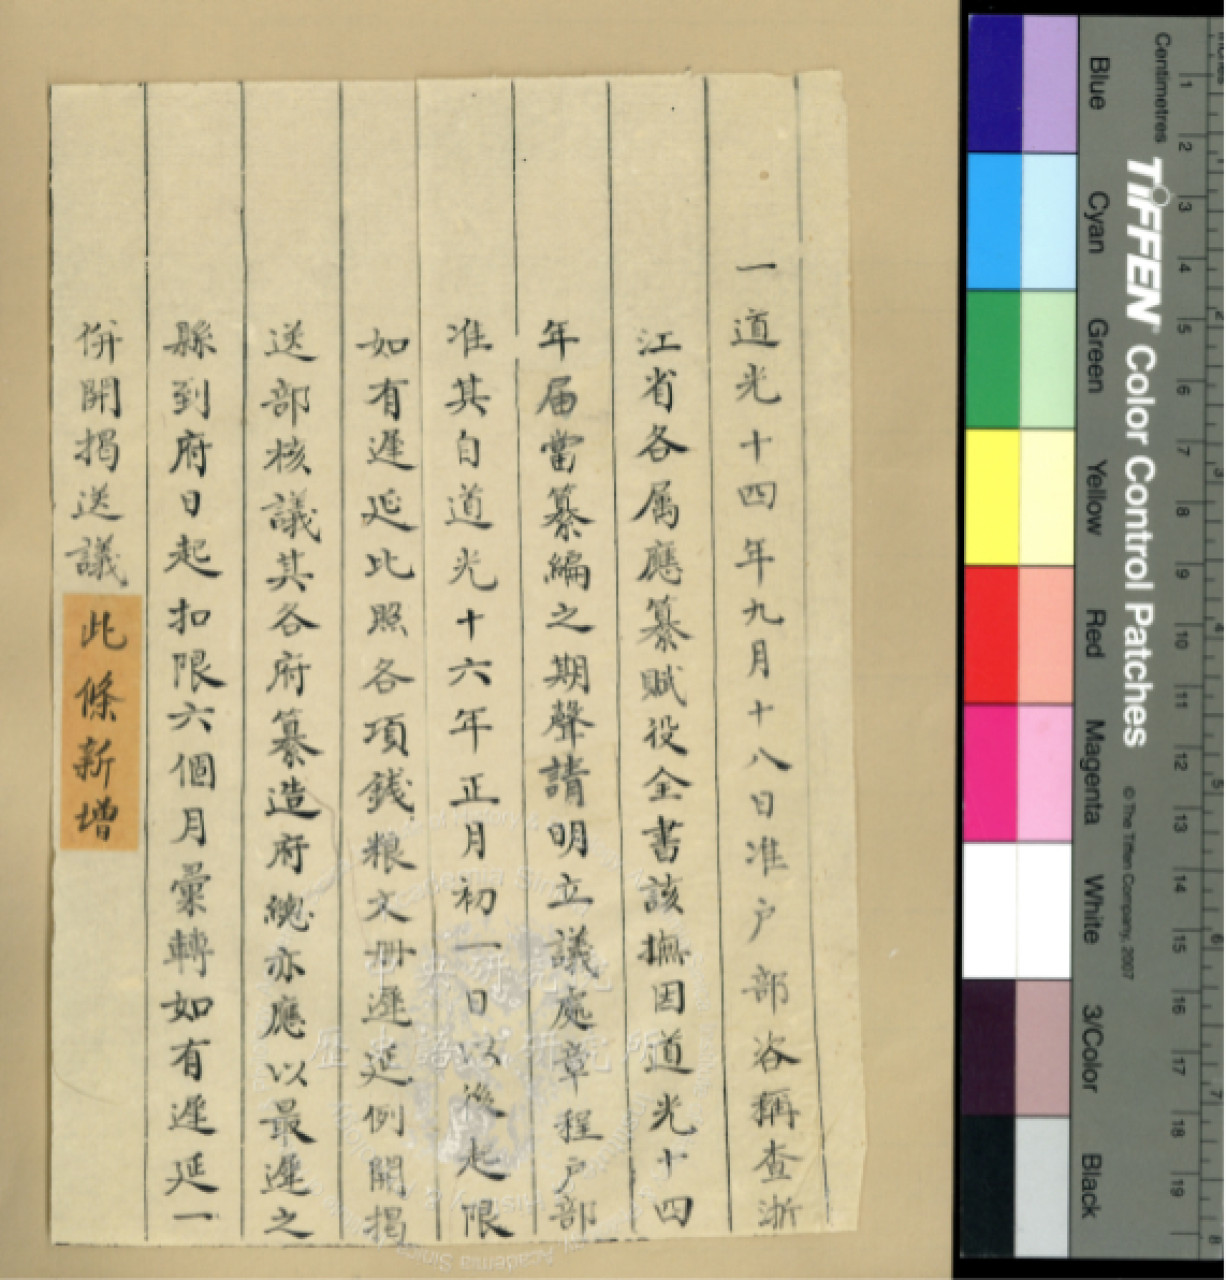 一道光十四年九月十八日准户部咨稱查浙
江省各属應纂賦役全書該撫因道光十四
年届當纂編之期聲請明立議處章程户部
准其自道光十六年正月初一日以後起限
如有遲延比照各項錢粮文册遲延例開揭
送部核議其各府纂造府總亦應以最遲之
縣到府日起扣限六個月彙轉如有遲延一
併開揭送議此條新增
中央研究院
歷史語言研究所
Centimetres
1 2 3 4 5 6 7 8 9 10 11 12 13 14 15 16 17 18 19
TIFFEN Color Control Patches
© The Tiffen Company, 2007
Blue Cyan Green Yellow Red Magenta White 3/Color Black